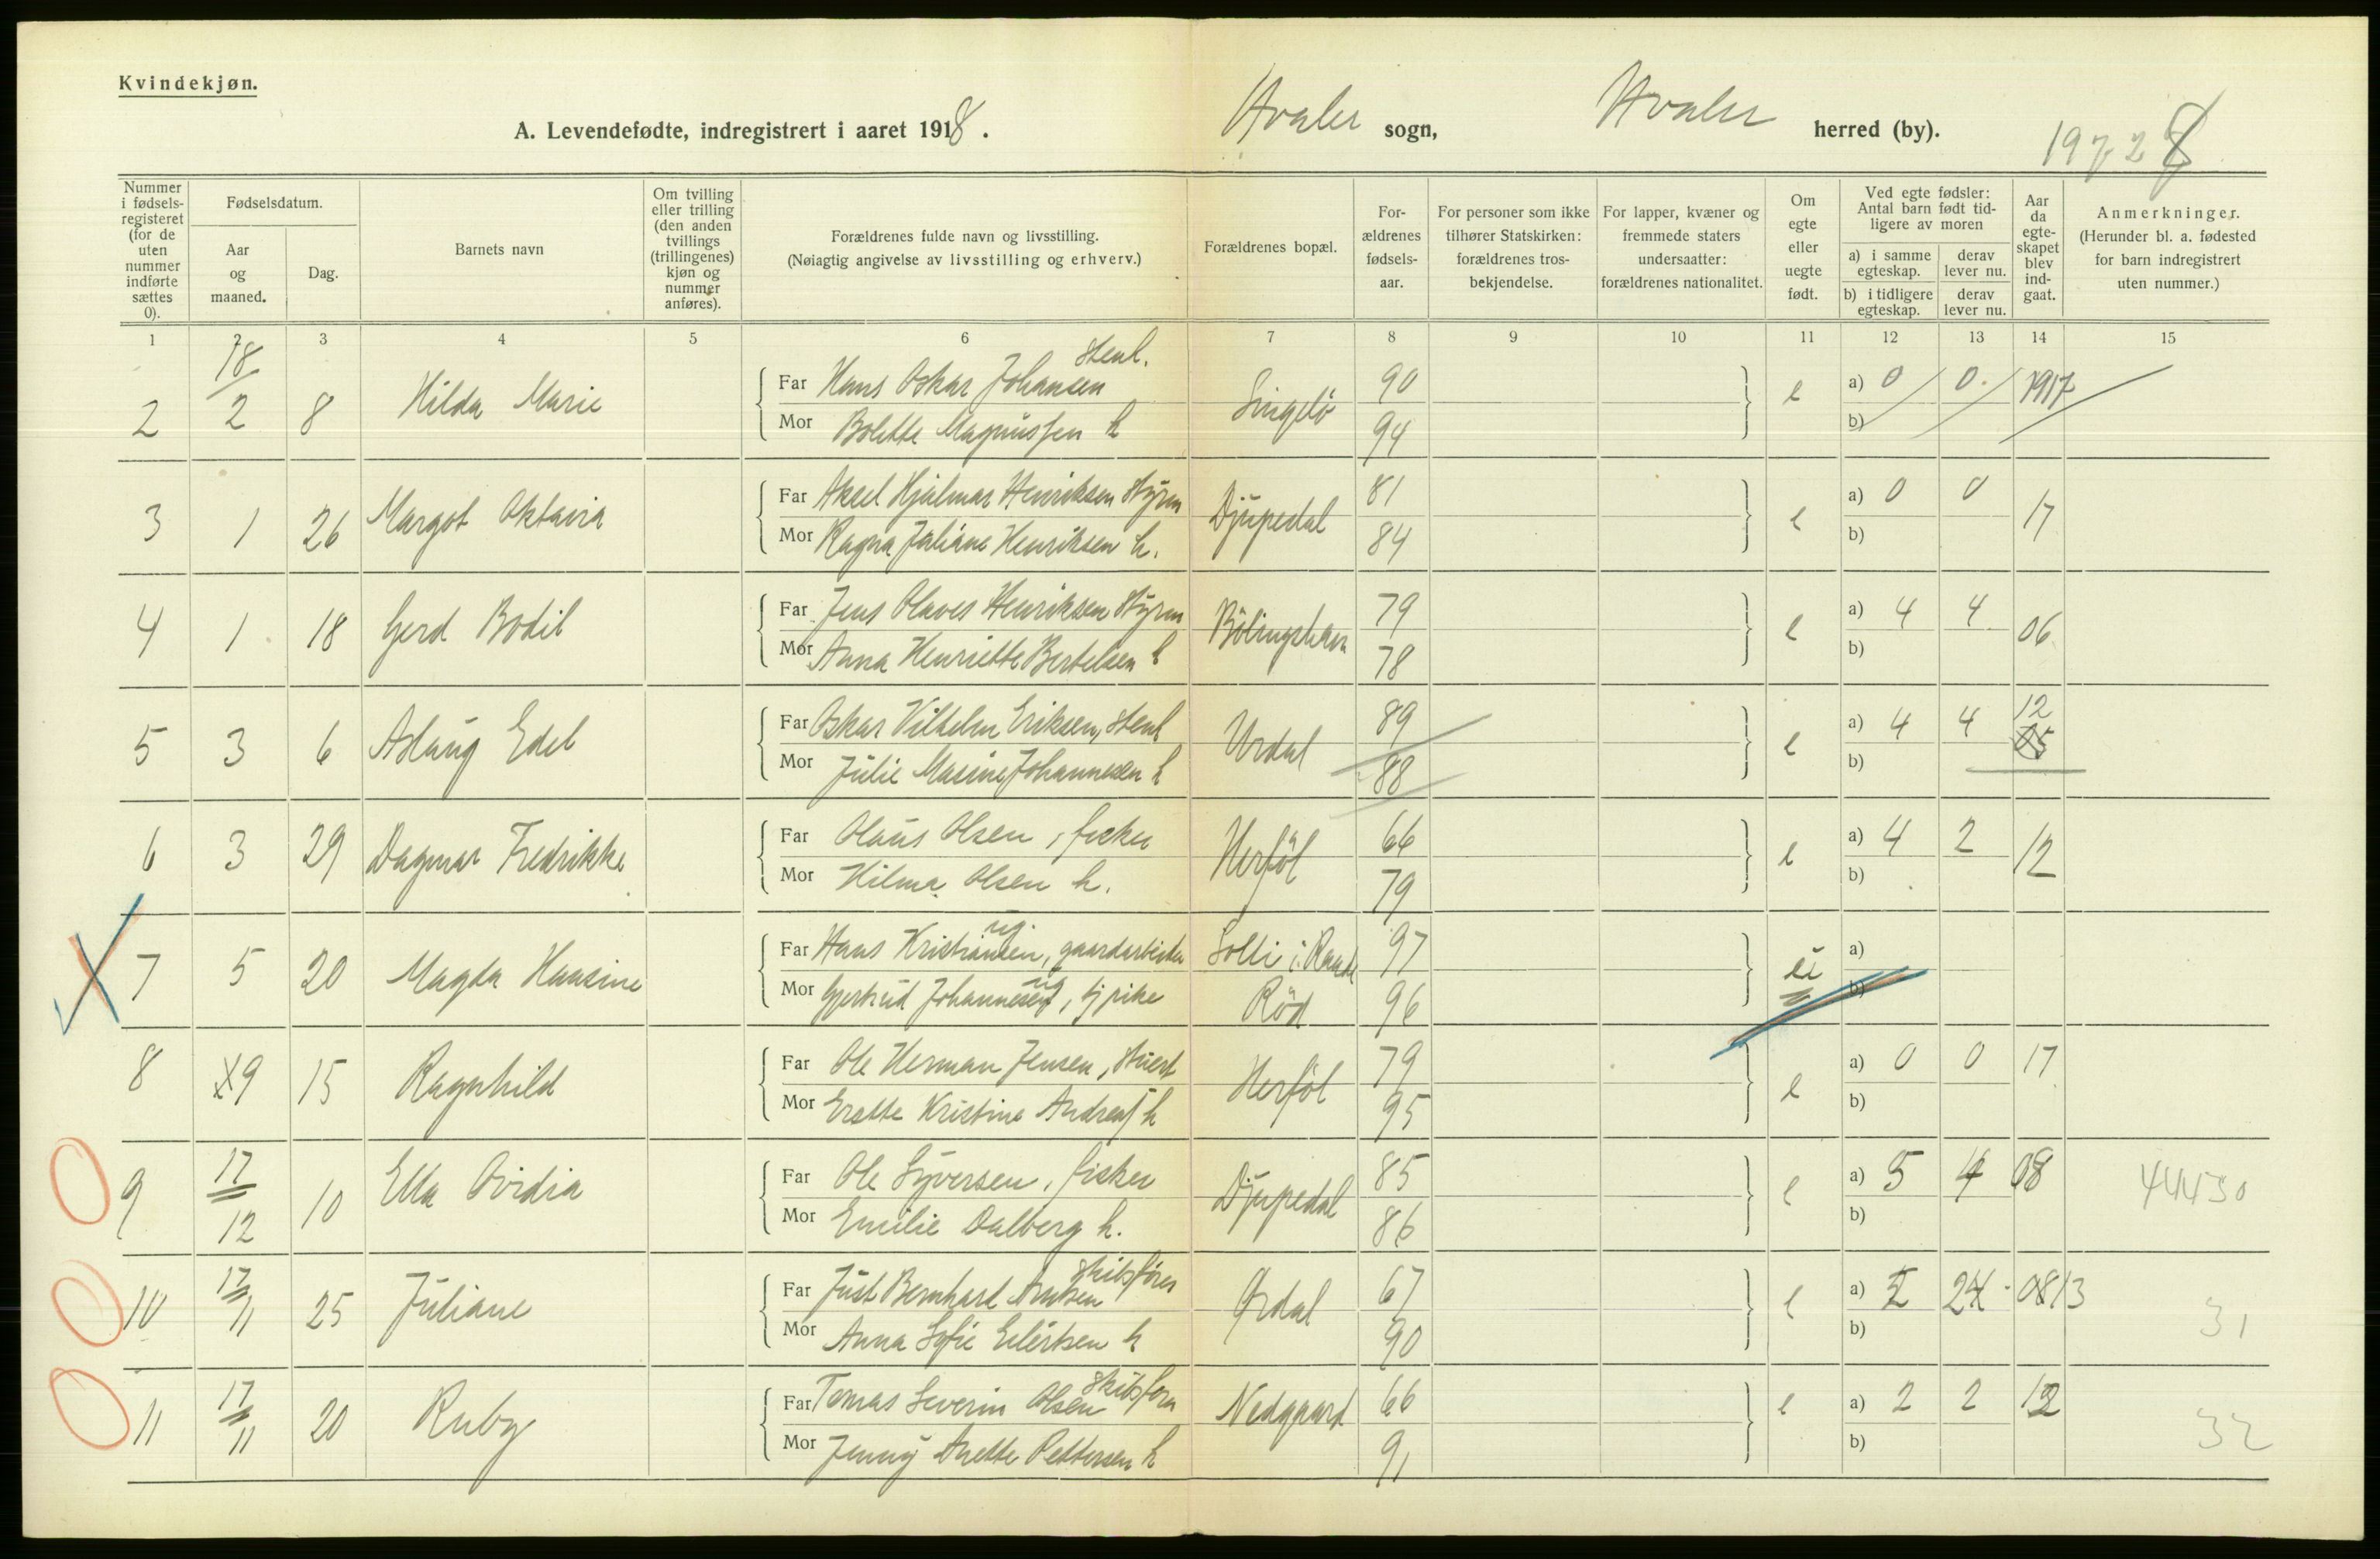 Kvindekjøn.
A. Levendefødte, indregistrert i aaret 1918.
Hvaler sogn, Hvaler herred (by).
Nummer i fødselsregisteret (for de uten nummer indførte sættes 0).
Fødselsdatum.
Aar og maaned.
Dag.
Barnets navn
Om tvilling eller trilling (den anden tvillings (trillingenes) kjøn og nummer anføres).
Forældrenes fulde navn og livsstilling.
(Nøiagtig angivelse av livsstilling og erhverv.)
Forældrenes bopæl.
Forældrenes fødselsaar.
For personer som ikke tilhører Statskirken: forældrenes trosbekjendelse.
For lapper, kvæner og fremmede staters undersaatter: forældrenes nationalitet.
Om egte eller uegte født.
Ved egte fødsler: Antal barn født tidligere av moren
a) i samme egteskap. derav lever nu.
b) i tidligere egteskap. derav lever nu.
Aar da egteskapet blev indgaat.
Anmerkninger.
(Herunder bl. a. fødested for barn indregistrert uten nummer.)
1 2 3 4 5 6 7 8 9 10 11 12 13 14 15
2 18/2 8 Hilda Marie Far Hans Oskar Johansen Stenh. Singlö 90 e a) 0 0 1917
Mor Bolette Magnussen h 94 b)
3 1 26 Margot Oktavia Far Aksel Hjalmar Henriksen Styrm Djupedal 81 e a) 0 0 17
Mor Ragna Juliane Henriksen h. 84 b)
4 1 18 Gerd Bodil Far Jens Olaves Henriksen Styrm Bölingshavn 79 e a) 4 4 06
Mor Anna Henriette Bertelsen h 78 b)
5 3 6 Aslaug Edel Far Oskar Vilhelm Eriksen, Stenh Urdal 89 e a) 4 4 12 05
Mor Julie Masine Johannesen h 88 b)
6 3 29 Dagmar Fredrikke Far Olaus Olsen, fisker Herföl 66 e a) 4 2 12
Mor Hilma Olsen h. 79 b)
7 5 20 Magda Hansine Far Hans Kristiansen, ug. gaardarbeider Solli i Raade 97 a)
Mor Gjertrud Johannesen ug, tj pike Röd 96 b)
8 9 15 Ragnhild Far Ole Herman Jensen, Stuert Herföl 79 e a) 0 0 17
Mor Kristine h 95 b)
9 17/12 10 Ella Ovidia Far Ole Syversen, fisker Djupedal 85 e a) 5 4 08 44430
Mor Emilie Dalberg h. 86 b)
10 17/11 25 Juliane Far Just Bernhard Arntsen Skibsförer Ørdal 67 e a) 2 13 31
Mor Anna Sofie Eilertsen h 90 b)
11 17/11 20 Ruby Far Tomas Severin Olsen Skibsförer Nedgaard 66 e a) 2 2 12 32
Mor Jenny Anette Pettersen h 91 b)